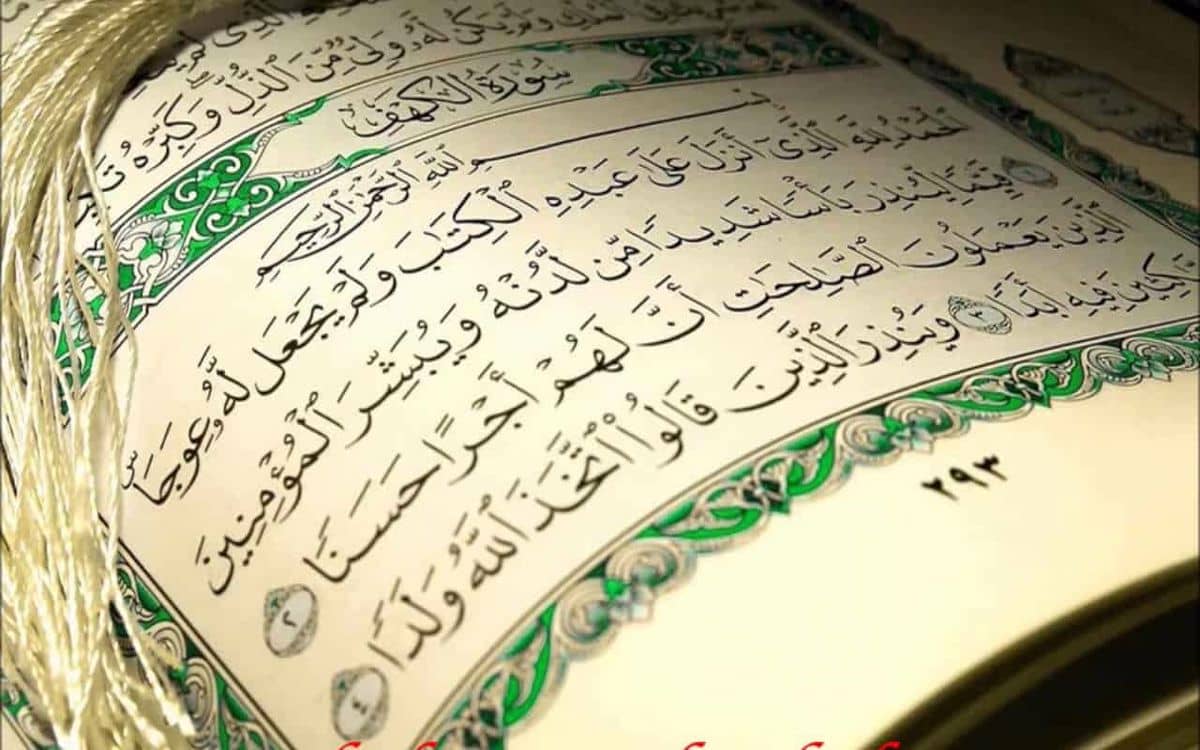 ٱلَّذِى لَمْ
ٱلْمُلْكِ وَلَمْ يَكُن لَّهُۥ وَلِىٌّ مِّنَ ٱلذُّلِّ وَكَبِّرْهُ
سُورَةُ الكَهْفِ
بِسْمِ ٱللَّهِ ٱلرَّحْمَٰنِ ٱلرَّحِيمِ
ٱلْحَمْدُ لِلَّهِ ٱلَّذِىٓ أَنزَلَ عَلَىٰ عَبْدِهِ ٱلْكِتَٰبَ وَلَمْ يَجْعَل لَّهُۥ عِوَجَاۜ
١ قَيِّمًا لِّيُنذِرَ بَأْسًا شَدِيدًا مِّن لَّدُنْهُ وَيُبَشِّرَ ٱلْمُؤْمِنِينَ
ٱلَّذِينَ يَعْمَلُونَ ٱلصَّٰلِحَٰتِ أَنَّ لَهُمْ أَجْرًا حَسَنًا ٢
مَّٰكِثِينَ فِيهِ أَبَدًا ٣ وَيُنذِرَ ٱلَّذِينَ قَالُوا۟ ٱتَّخَذَ ٱللَّهُ وَلَدًا ٤
٢٩٣